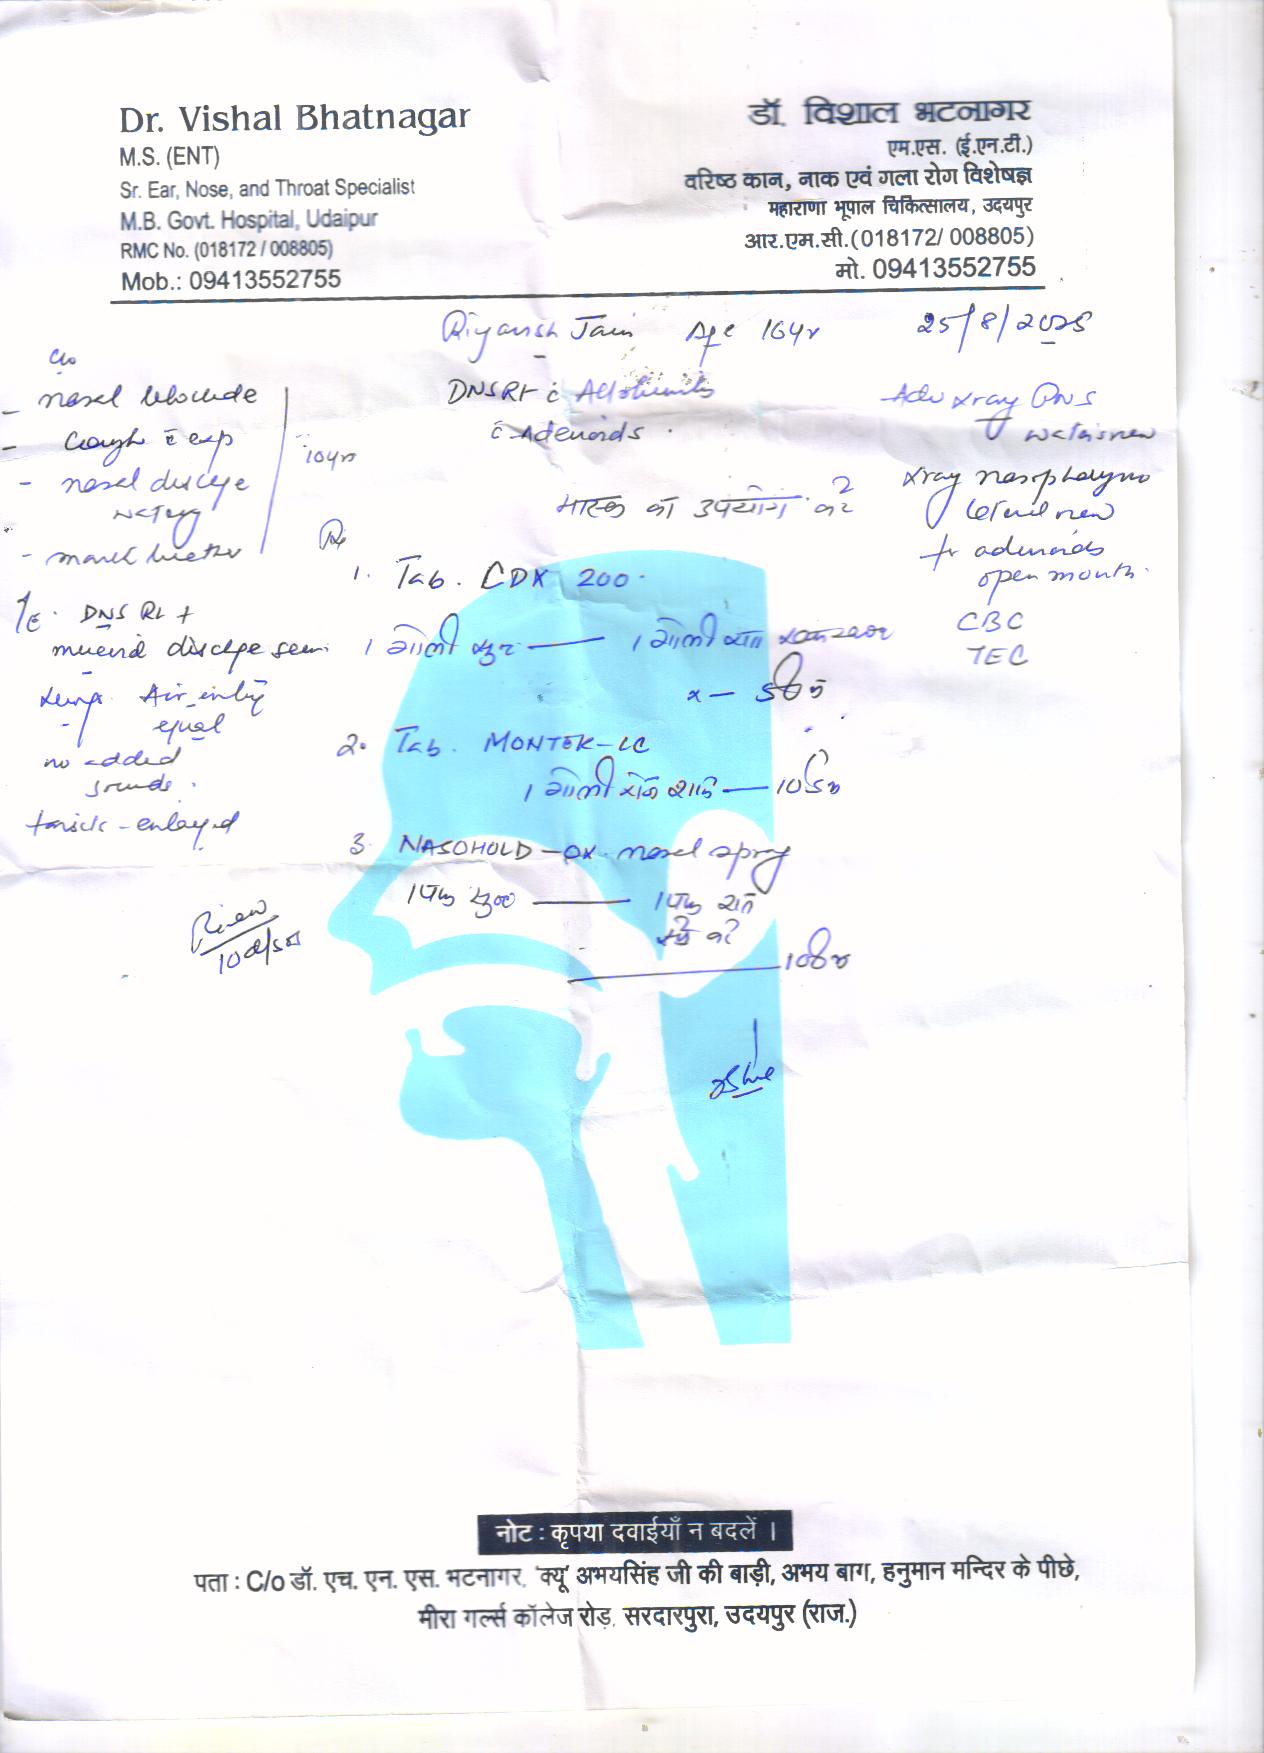 Dr. Vishal Bhatnagar
M.S. (ENT)
Sr. Ear, Nose, and Throat Specialist
M.B. Govt. Hospital, Udaipur
RMC No. (018172 / 008805)
Mob.: 09413552755
डॉ. विशाल भटनागर
एम.एस. (ई.एन.टी.)
वरिष्ठ कान, नाक एवं गला रोग विशेषज्ञ
महाराणा भूपाल चिकित्सालय, उदयपुर
आर.एम.सी.(018172/ 008805)
मो. 09413552755
Riyansh Jain Age 16yr 25/8/2025
c/o
- nasal blockade
- Cough c exp
- nasal
-
10yr
O/E. DNS Rt +
Lungs Air entry
equal
no added
sounds.
- enlarged
Review
10
DNS Rt c
c Adenoids.
मास्क का उपयोग करे
Rx
1. Tab. CDX 200.
1 गोली सुबह — 1 गोली
x — 5 दिन
2. Tab. MONTEK-LC
1 गोली रोज — 10 दिन
3. NASOHOLD-OX nasal spray
1 सुबह — 1
करे
10 दिन
Adv Xray PNS
waters view
Xray nasopharynx
lateral view
fr adenoids
open mouth.
CBC
TEC
नोट : कृपया दवाईयाँ न बदलें ।
पता : C/o डॉ. एच. एन. एस. भटनागर, 'क्यू' अभयसिंह जी की बाड़ी, अभय बाग, हनुमान मन्दिर के पीछे,
मीरा गर्ल्स कॉलेज रोड़, सरदारपुरा, उदयपुर (राज.)